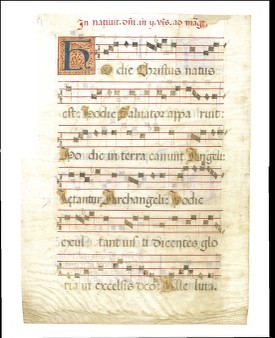 In nativit. dñi. in ij. vẽs. ad mag̃t.
Hodie Christus natus
est: Hodie Salvator apparuit:
Hodie in terra canunt Angeli:
letantur Archangeli: Hodie
exultant iusti dicentes glo
ria in excelsis deo: Alleluia.